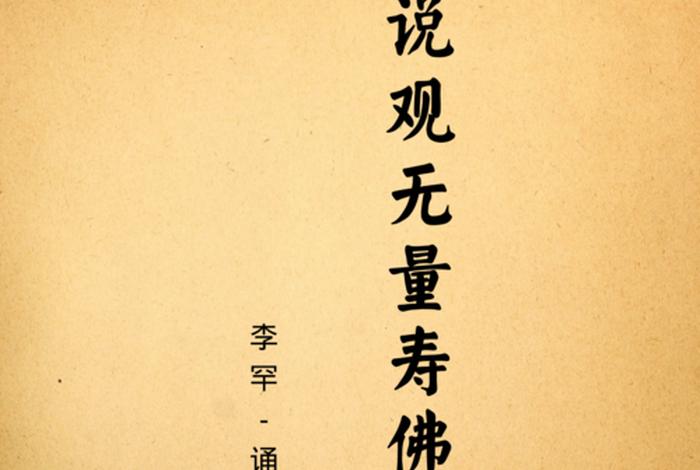 说观无量寿佛
李罕-诵